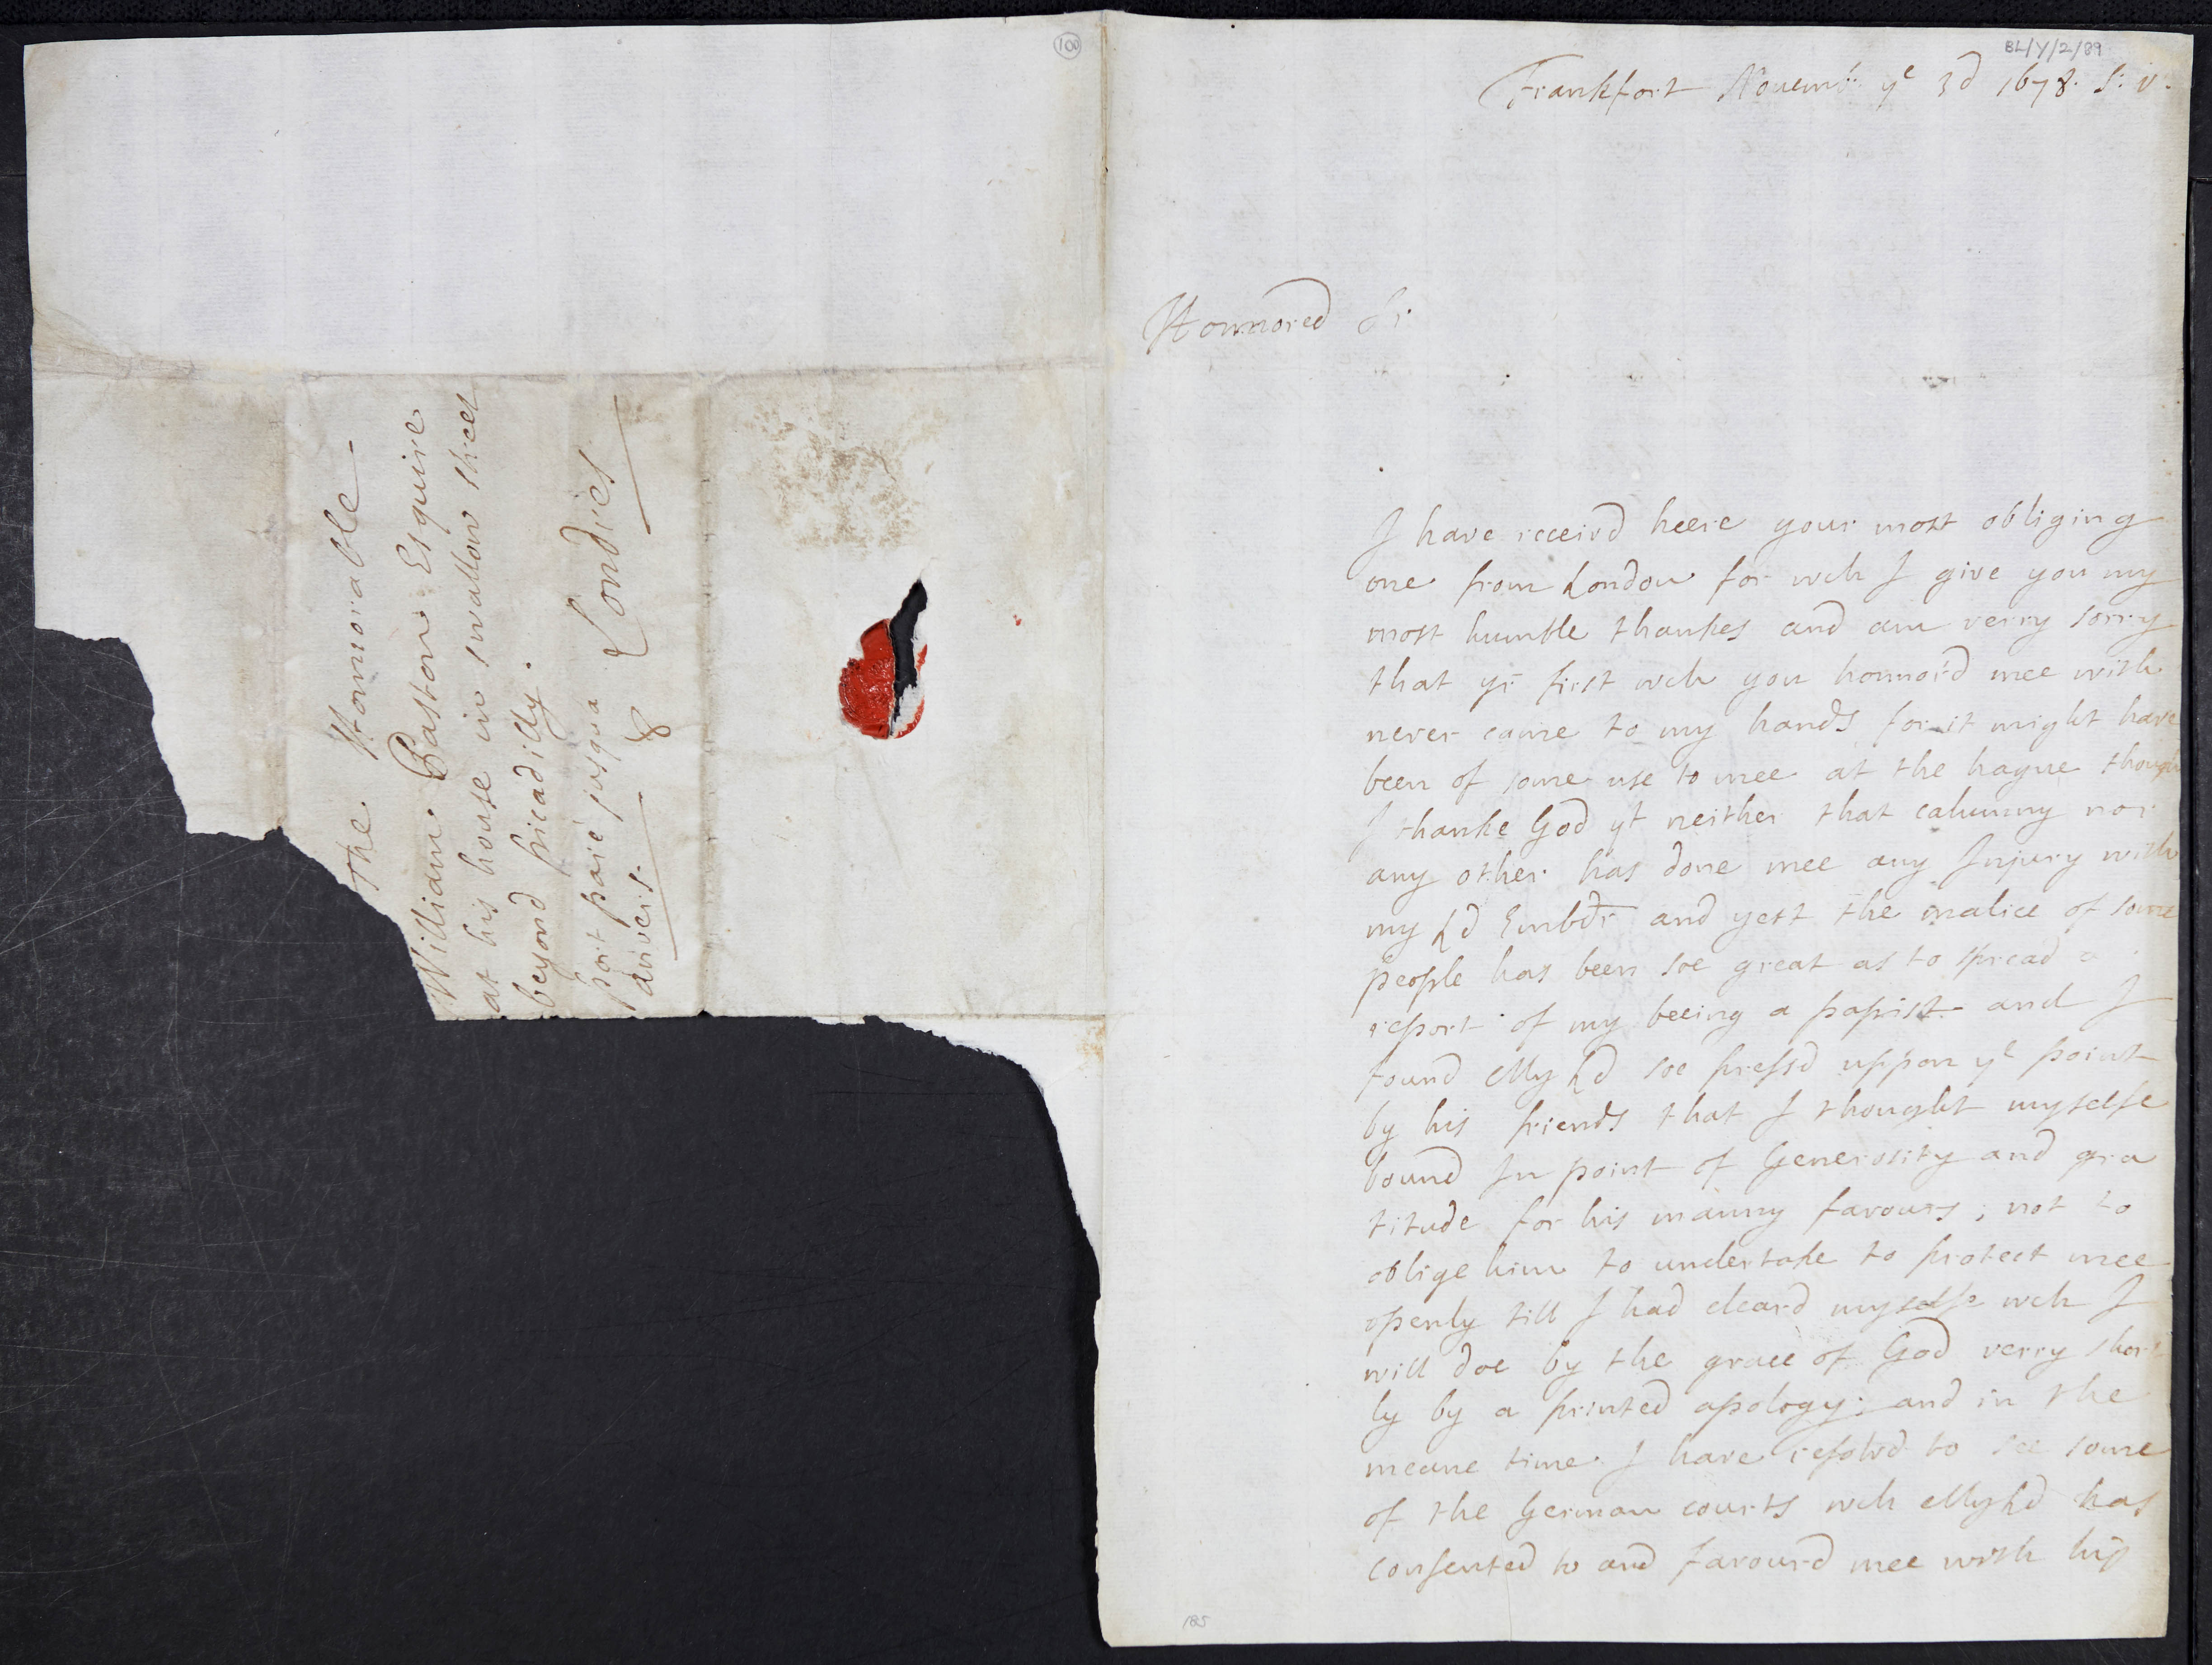 100
The Honnorable
William Paston Esquire
at his house in swallow street
beyond picadilly.
port paié jusqua
anvers.
& Londres
BL/Y/2/89
Frankfort Novemb: ye 3d 1678. s: v:
Honnored Sr
I have receivd heere your most obliging
one from London for wch I give you my
most humble thankes and am verry sorry
that yr first wch you honnord mee with
never came to my hands for it might have
been of some use to mee at the hague though
I thanke God yt neither that calumny nor
any other has done mee any Injury with
my Ld Embdr and yest the malice of some
people has been soe great as to spread a
report of my beeing a papist and I
found My Ld soe pressd uppon ye point
by his friends that I thought myselfe
bound In point of Generosity and gra
titude for his manny favours; not to
oblige him to undertake to protect mee
openly till I had cleard myselfe wch I
will doe by the grace of God verry short
ly by a printed apology; and in the
meane time I have resolvd to see some
of the German courts wch My Ld has
consented to and favourd mee with his
185